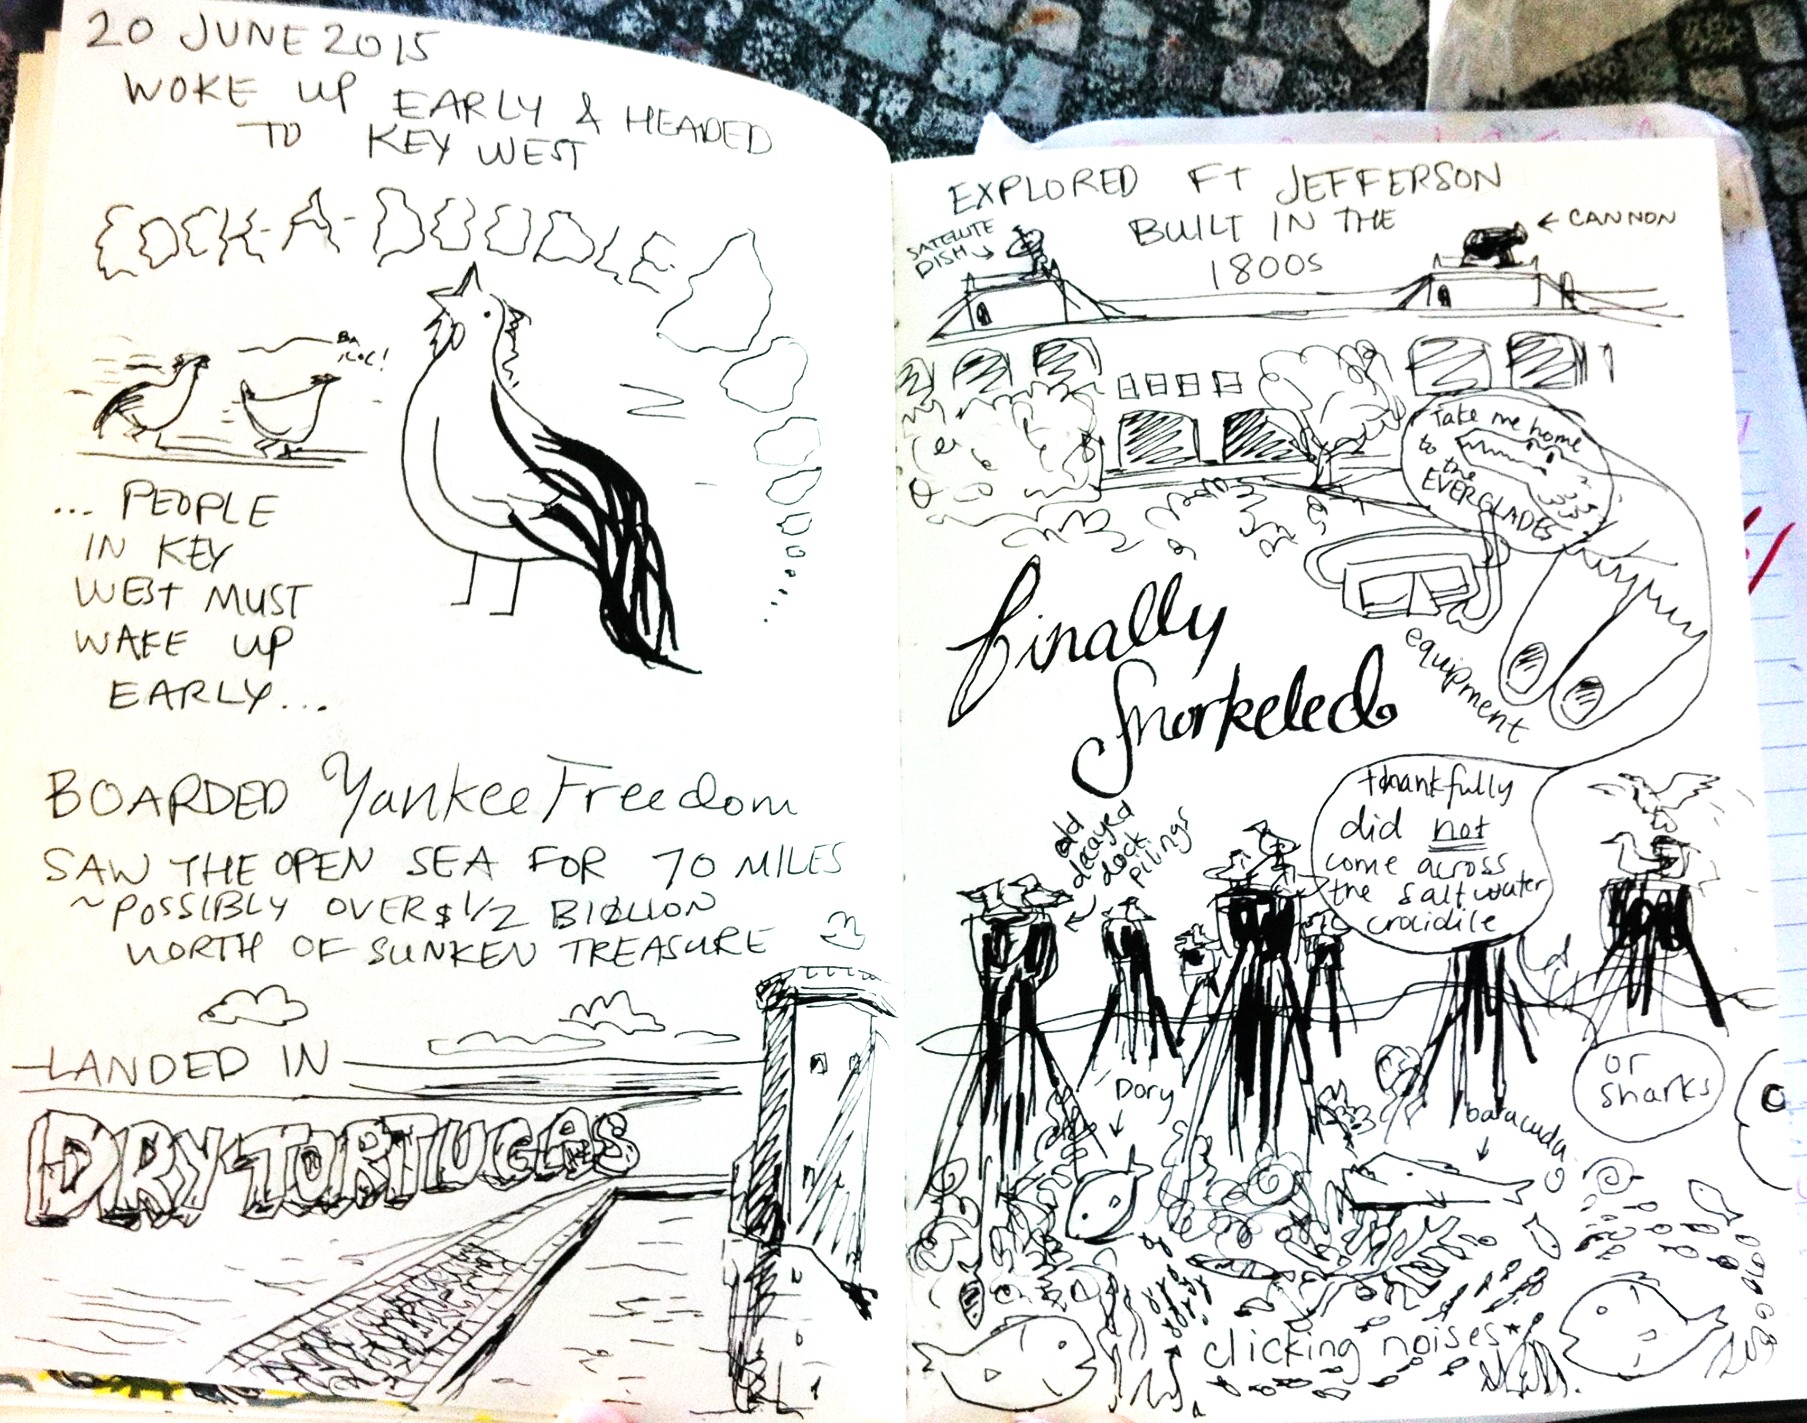 20 JUNE 2015
WOKE UP EARLY & HEADED
TO KEY WEST
COCK-A-DOODLE
BA
... PEOPLE
IN KEY
WEST MUST
WAKE UP
EARLY...
BOARDED Yankee Freedom
SAW THE OPEN SEA FOR 70 MILES
~POSSIBLY OVER $1/2 BILLION
WORTH OF SUNKEN TREASURE
LANDED IN
DRY TORTUGAS
EXPLORED FT JEFFERSON
BUILT IN THE
1800s
SATELLITE
DISH
← CANNON
Take me home
to
the
EVERGLADES
equipment
finally
Snorkeled
thankfully
did not
come across
the saltwater
crocidile
old
decayed
dock
pilings
or
sharks
Dory
baracuda
clicking noises*